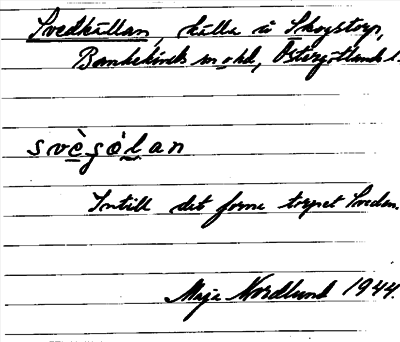 Svedkällan, källa å Skogstorp,
Bankekinds sn o hd, Östergötlands l.
svègǿlan
Intill det forne torpet Sveden.
Maja Nordlund 1944.